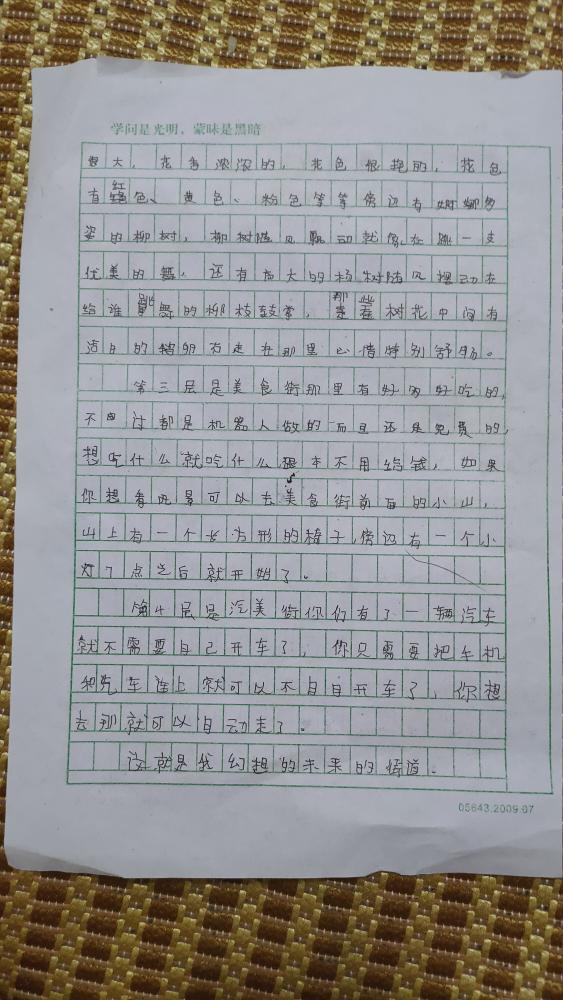 学问是光明，蒙昧是黑暗
很大，花香浓浓的，花色很艳的，花色
有红色、黄色、粉色等等傍边有婀娜多
姿的柳树，柳树随风飘动就像在跳一支
优美的舞，还有高大的杨树随风摆动在
给谁跳舞的柳枝鼓掌，那些树花中间有
洁白的鹅卵石走在那里心情特别舒畅。
第三层是美食街那里有好多好吃的，
不过都是机器人做的而且还是免费的，
想吃什么就吃什么根本不用给钱，如果
你想看风景可以去美食街前面的小山，
山上有一个长方形的椅子，傍边有一个小
灯7点之后就开始了。
第4层是汽美街你们有了一辆汽车
就不需要自己开车了，你只需要把手机
和汽车连上就可以不自目开车了，你想
去那就可以自动走了。
这就是我幻想的未来的街道.
05643.2009.07